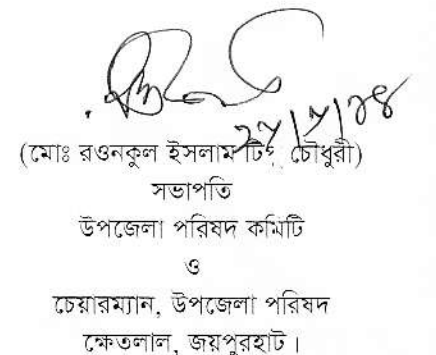 (মোঃ রওনকুল ইসলাম টিপু চৌধুরী)
সভাপতি
উপজেলা পরিষদ কমিটি
ও
চেয়ারম্যান, উপজেলা পরিষদ
ক্ষেতলাল, জয়পুরহাট।